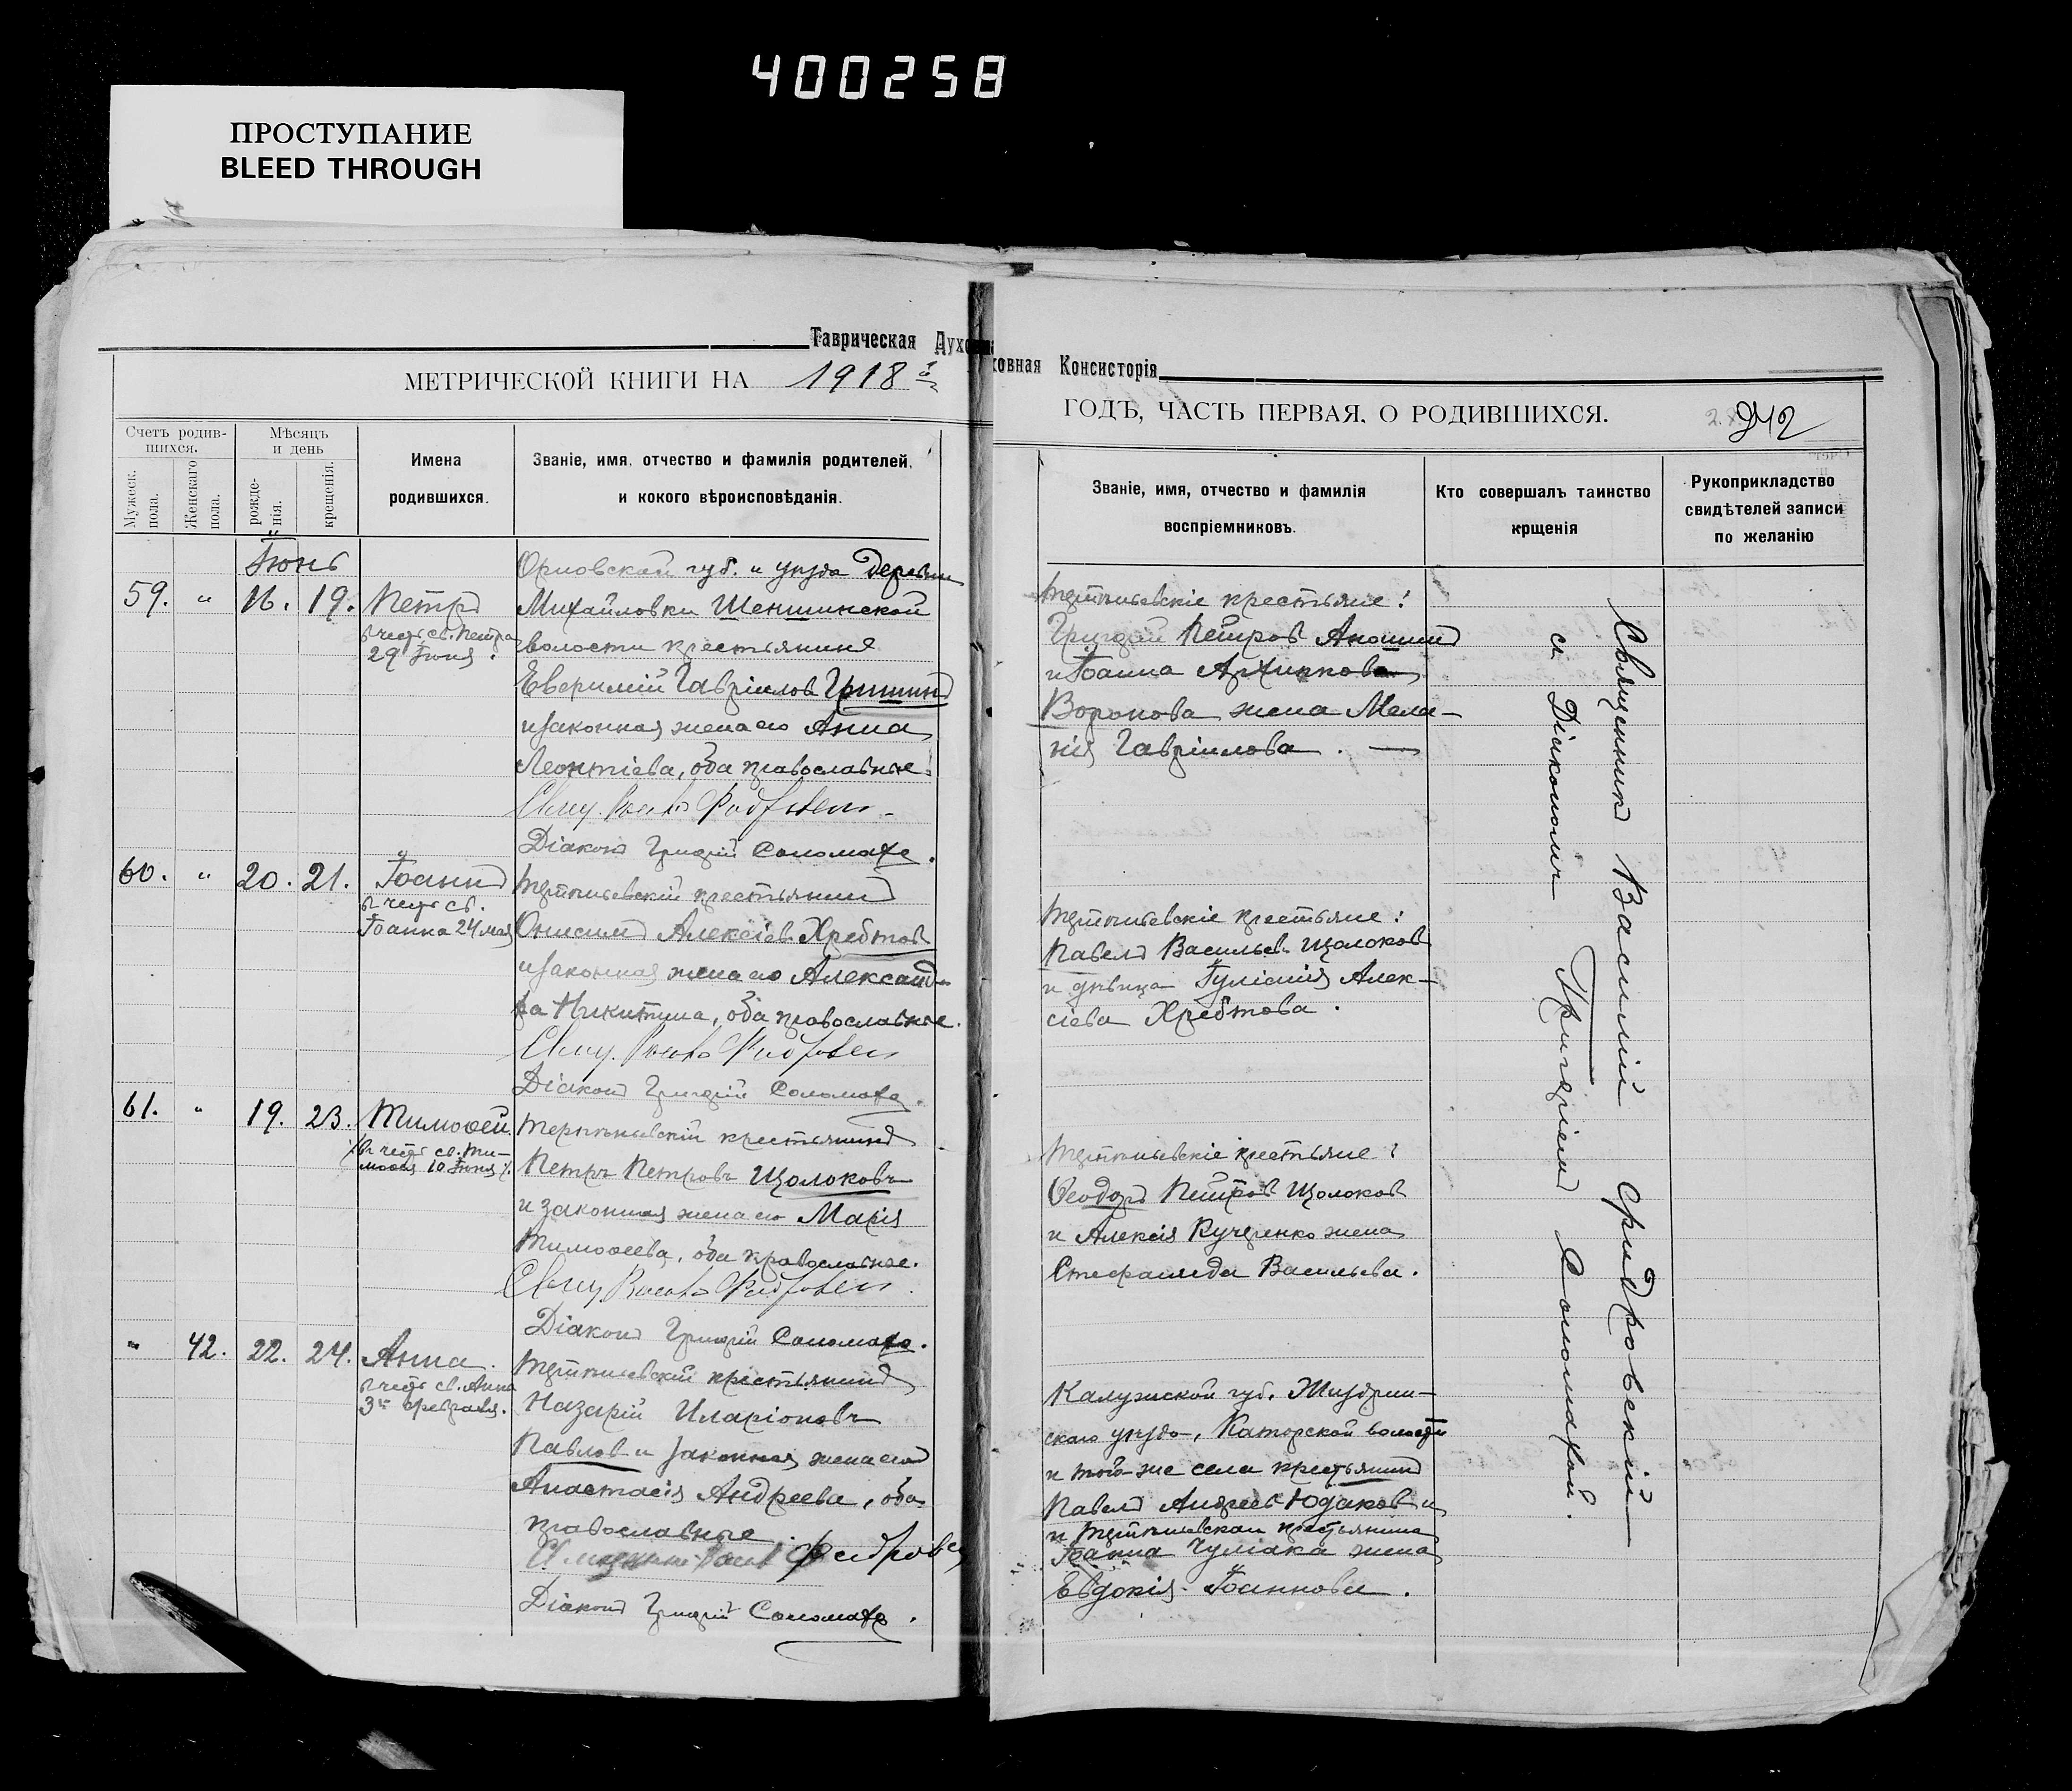 400258
ПРОСТУПАНИЕ
BLEED THROUGH
Таврическая Духовная Консисторія
МЕТРИЧЕСКОЙ КНИГИ НА 1918 й
Счетъ родив-
шихся.
Мужеск. пола.
Женскаго пола.
Мѣсяцъ
и день
рожде-
нія.
крещенія.
Имена
родившихся.
Званіе, имя, отчество и фамилія родителей,
и кокого вѣроисповѣданія.
Іюнь
59. " 16. 19. Петръ
въ честь св. Петра
29 Іюня.
Орловской губ. и уѣзда Деревни
Михайловки Шеншинской
волости крестьянинъ
Евѳимій Гавріиловъ Гришинъ
и законная жена его Анна
Леонтіева, оба православные.
Діаконъ Григорій Соломаха.
60. " 20. 21. Іоаннъ
въ честь св.
Іоанна 24 мая
крестьянинъ
Онисимъ Алексіевъ Хребтовъ
и законная жена его Александ-
ра Никитина, оба православные.
Діаконъ Григорій Соломаха.
61. " 19. 23. Тимоѳей.
въ честь св. Ти-
моѳея 10 Іюня
крестьянинъ
Петръ Петровъ Щолоковъ
и законная жена его Марія
Тимоѳеева, оба православные.
Діаконъ Григорій Соломаха.
" 42. 22. 24. Анна.
въ честь св. Анны
3го февраля.
крестьянинъ
Назарій Иларіоновъ
Павловъ и законная жена его
Анастасія Андреева, оба
православные
Діаконъ Григорій Соломаха.
ГОДЪ, ЧАСТЬ ПЕРВАЯ, О РОДИВШИХСЯ.
242
Званіе, имя, отчество и фамилія
воспріемниковъ.
Кто совершалъ таинство
крщенія
Рукоприкладство
свидѣтелей записи
по желанію
крестьяне:
Григорій Петровъ Аношинъ
и Іоанна Архиппова
Воронова жена Мела-
нія Гавріилова.
крестьяне:
Павелъ Васильевъ Щолоковъ
и дѣвица Іуліанія Алек-
сіева Хребтова.
крестьяне:
Ѳеодоръ Петровъ Щолоковъ
и Алексія Кучеренко жена
Стефанида Васильева.
Калужской губ. Жиздрин-
скаго уѣзда, волости
и того-же села крестьянинъ
Павелъ Андреевъ Юдаковъ и
Іоанна Чумака жена
Евдокія Іоаннова.
Священникъ Василій Фридровскій
съ Діакономъ Григоріемъ Соломахой.